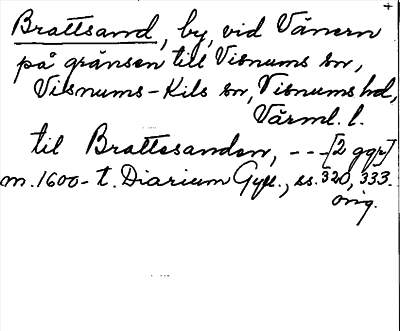 Brattsand, by, vid Vänern
på gränsen till Visnums sn,
Visnums-Kils sn, Visnums hd,
Värml. l.
til Brattesanden, --- [2 ggr]
m. 1600-t. Diarium Gyll., ss. 320, 333.
orig.